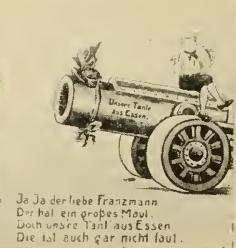 Unsere Tante
aus Essen.
Ja Ja der liebe Franzmann
Der hat ein großes Maul.
Doch uns're Tant aus Essen
Die ist auch gar nicht faul.